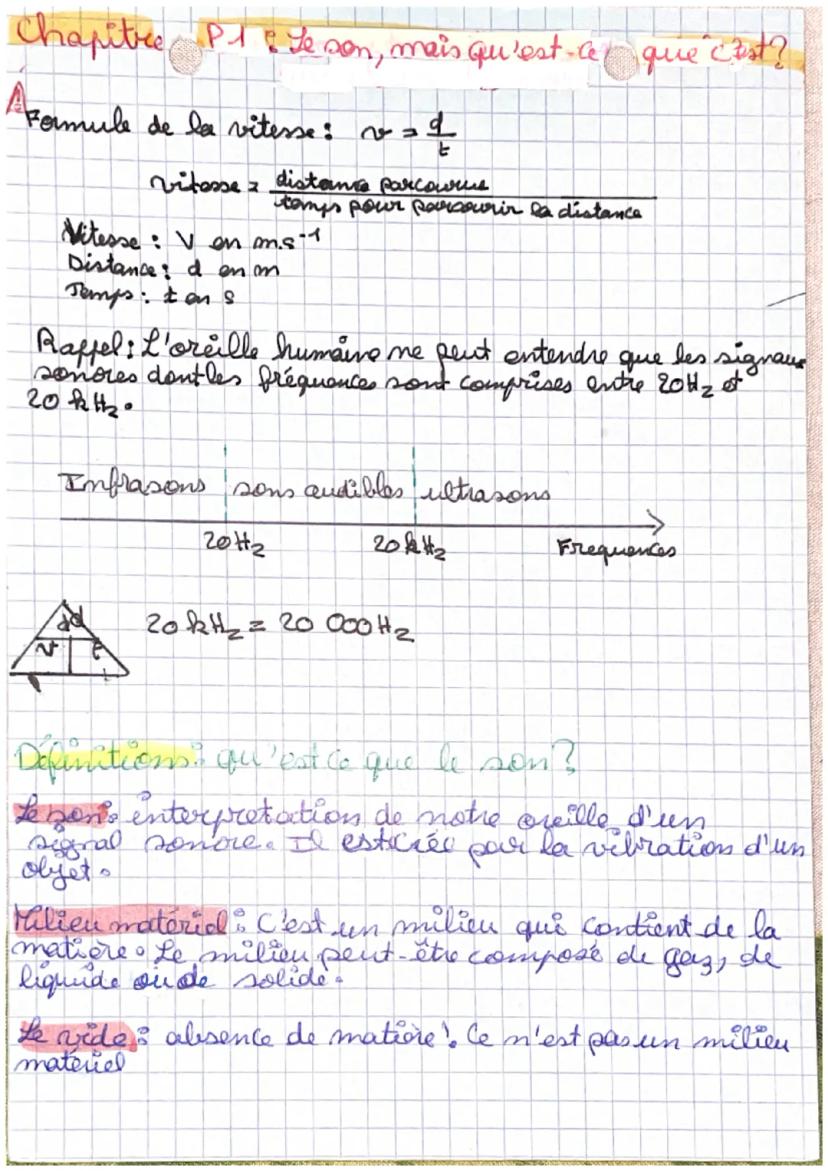 Chapitre P1 : Le son, mais qu'est-ce que c'est?
A
Formule de la vitesse : v = d/t
vitesse = distance parcourue / temps pour parcourir la distance
Vitesse : V en m.s⁻¹
Distance : d en m
Temps : t en s
Rappel : L'oreille humaine ne peut entendre que les signaux
sonores dont les fréquences sont comprises entre 20Hz et
20 kHz.
Infrasons sons audibles ultrasons
20Hz 20kHz Frequences
d
v t
20 kHz = 20 000Hz
Définitions : qu'est ce que le son?
Le son : interpretation de notre oreille d'un
signal sonore. Il est créé par la vibration d'un
objet.
Milieu matériel : C'est un milieu qui contient de la
matière. Le milieu peut-être composé de gaz, de
liquide ou de solide.
Le vide : absence de matière! Ce n'est pas un milieu
matériel